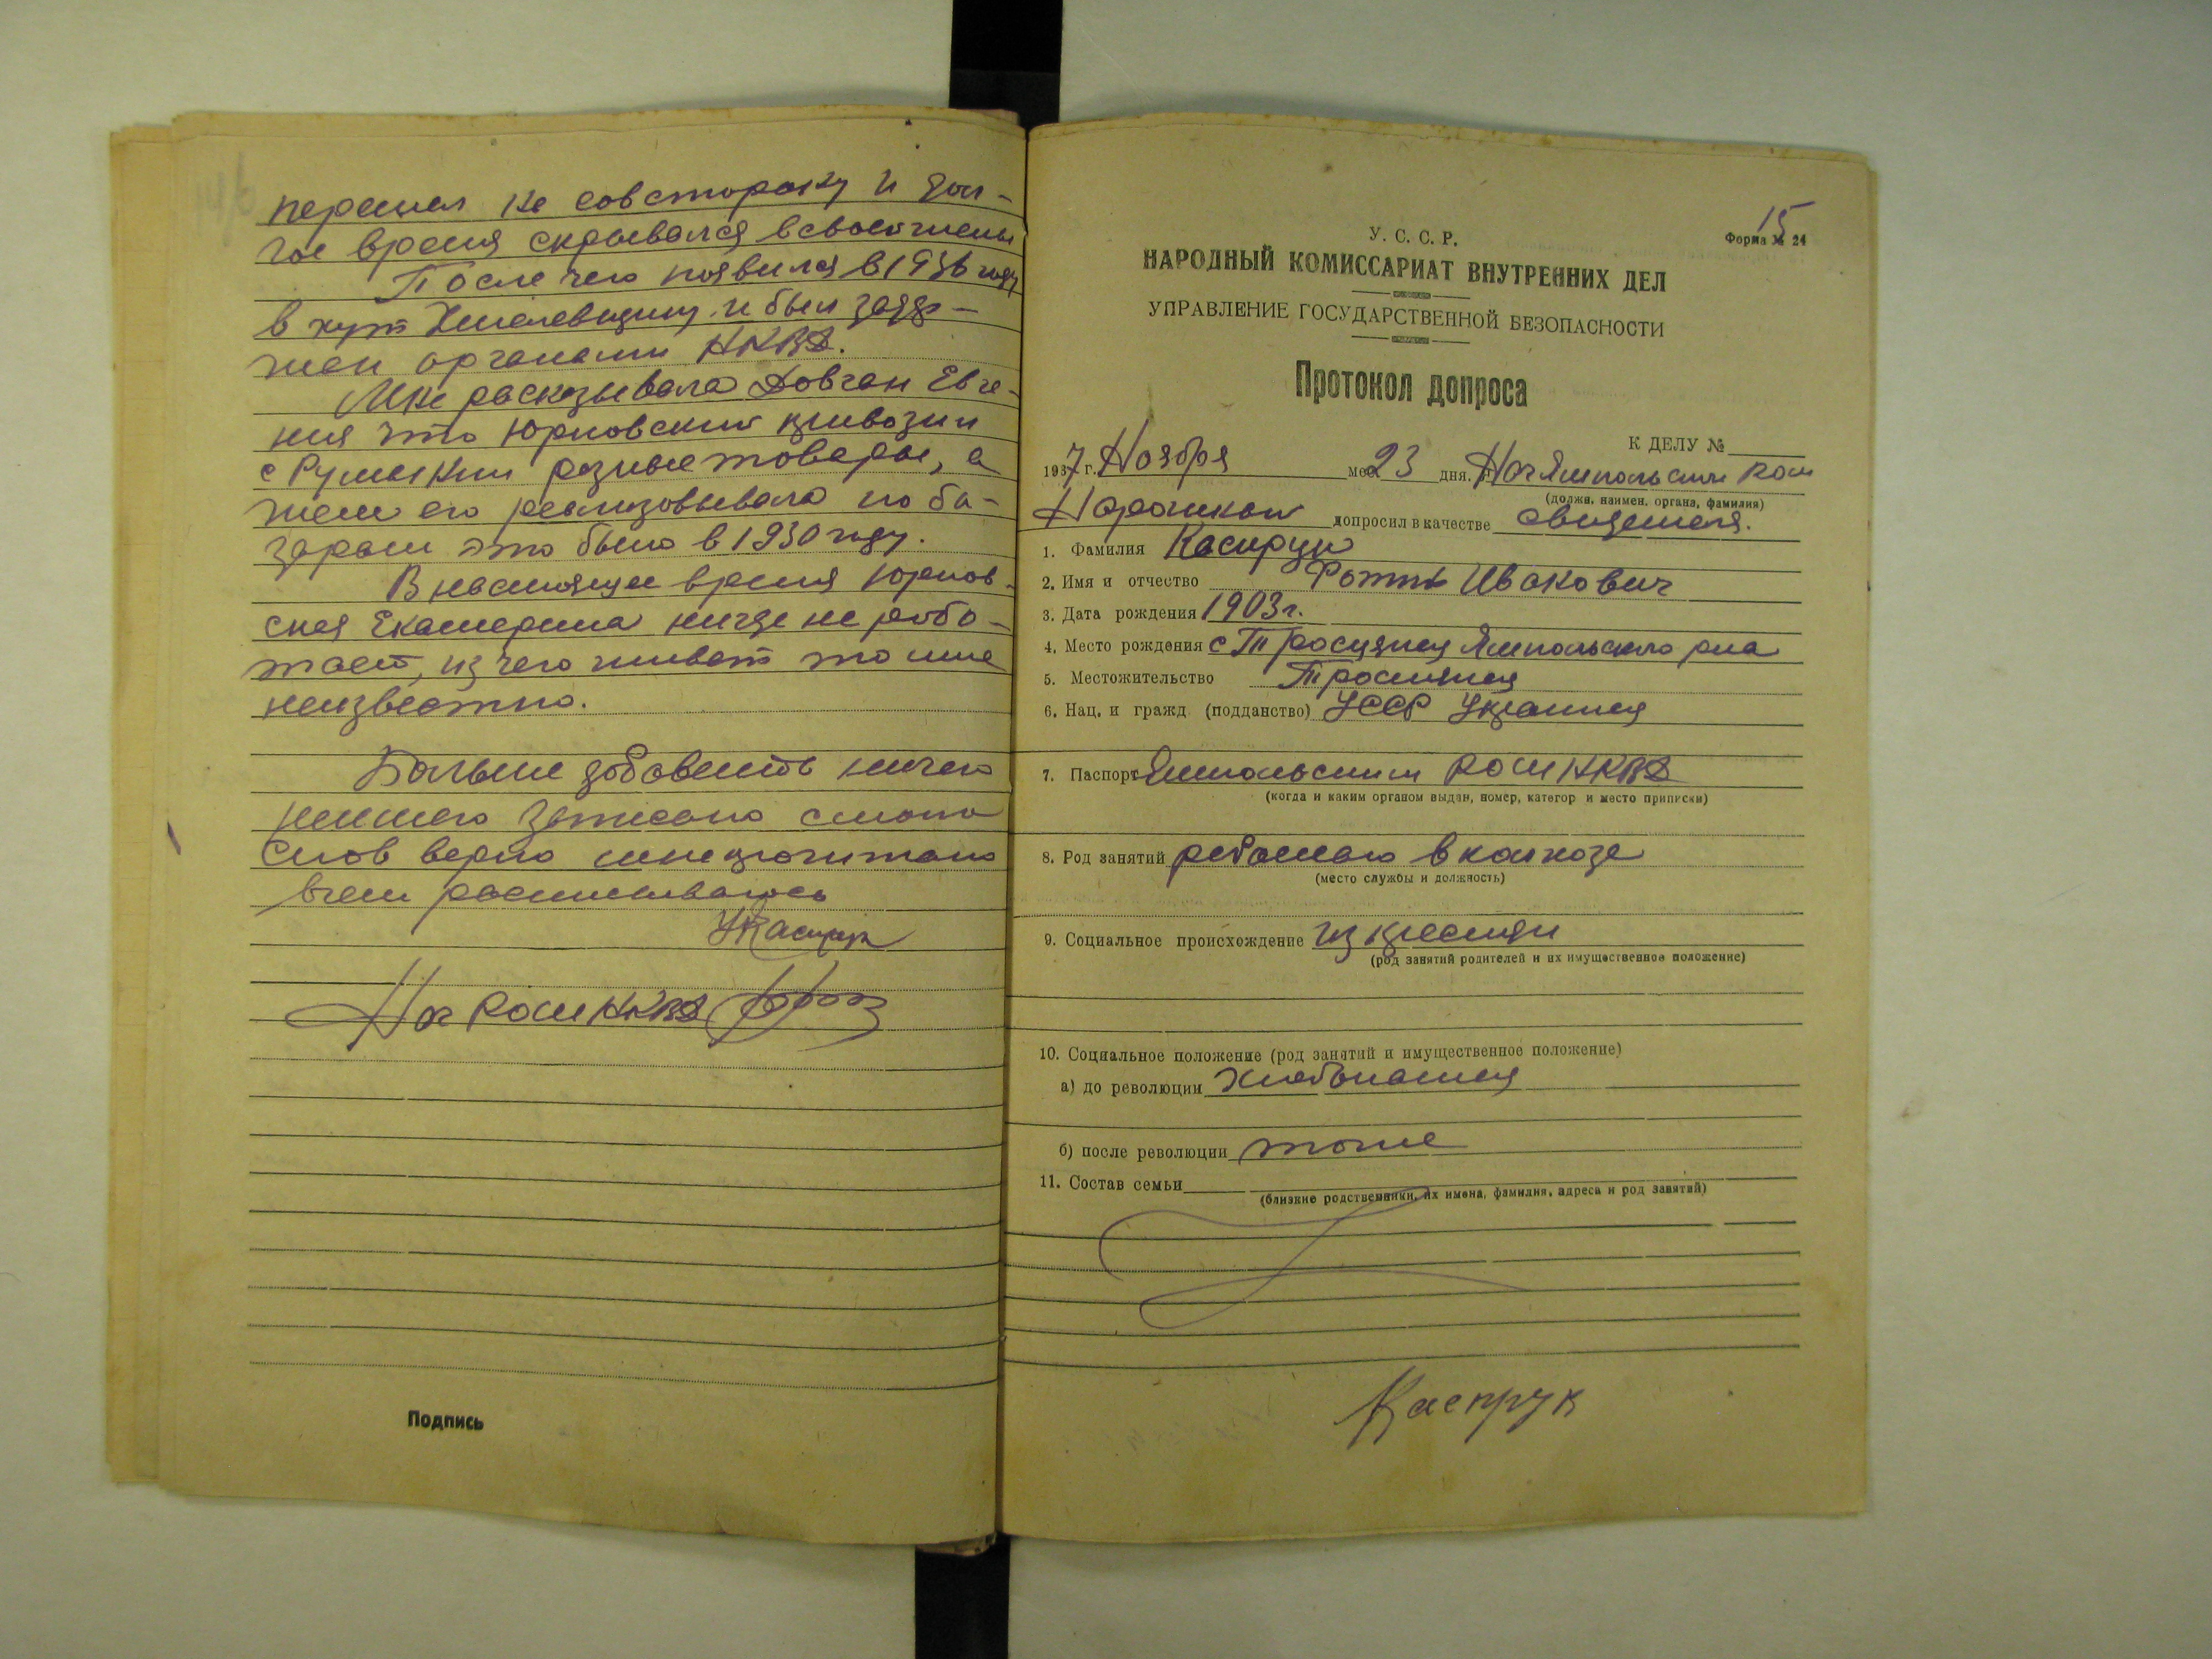 перешел на совсторону и дол-
гое время скрывался
После чего появился в 1936 году
в хут Хмелевщину и был задер-
жан органами НКВД.
Мне расказывала Довган Евге-
ния что Юрковский привозил
с Румынии разные товары, а
жена его реализовывала по ба-
зарам это было в 1930 году.
В настоящее время Юрков-
ская Екатерина нигде не рабо-
тает, из чего живет то мне
неизвестно.
Больше добавить ничего
неимею записано с моих
слов верно мне прочитано
вчем расписываюсь
Нач РОМ НКВД
Подпись
15
У. С. С. Р.
Форма № 24
НАРОДНЫЙ КОМИССАРИАТ ВНУТРЕННИХ ДЕЛ
УПРАВЛЕНИЕ ГОСУДАРСТВЕННОЙ БЕЗОПАСНОСТИ
Протокол допроса
К ДЕЛУ №
1937 г. Ноября мес. 23 дня. Я Нач Ямпольским РОМ
(должн. наимен. органа, фамилия)
допросил в качестве свидетеля.
1. Фамилия Каспрук
2. Имя и отчество Фотий Иванович
3. Дата рождения 1903 г.
4. Место рождения с Тростянец Ямпольского р-на
5. Местожительство Тростянец
6. Нац. и гражд (подданство) УССР Украинец
7. Паспорт Ямпольским РОМ НКВД
(когда и каким органом выдан, номер, категор и место приписки)
8. Род занятий работаю в колхозе
(место службы и должность)
9. Социальное происхождение из крестьян
(род занятий родителей и их имущественное положение)
10. Социальное положение (род занятий и имущественное положение)
а) до революции хлебопашец
б) после революции тоже
11. Состав семьи
(близкие родственники, их имена, фамилия, адреса и род занятий)
Каспрук